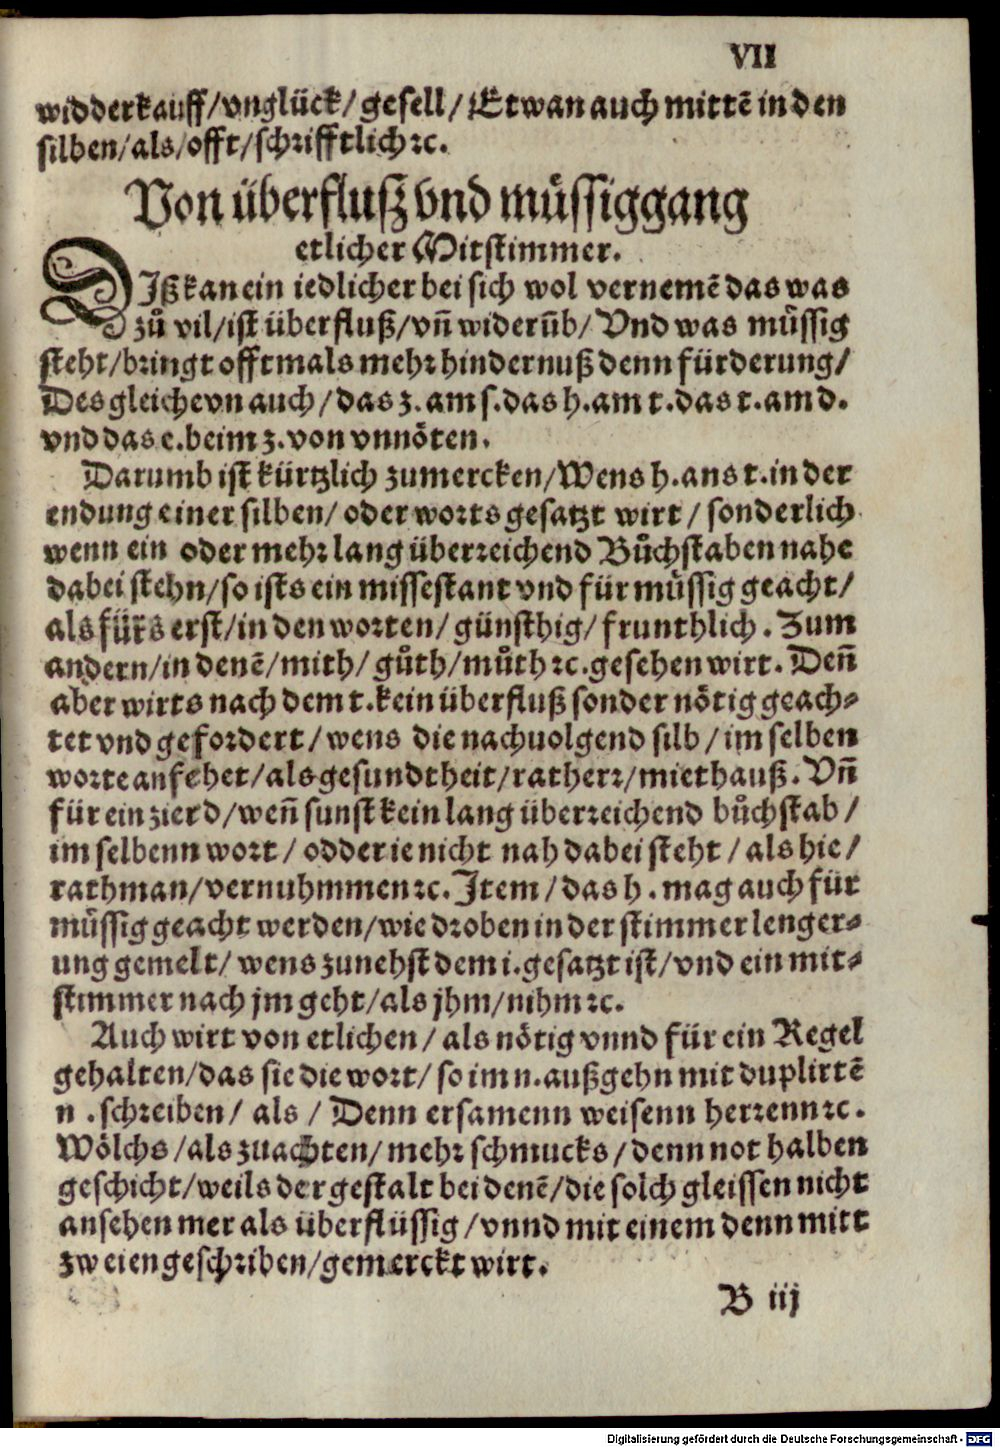 VII
widderkauff/vnglück/gesell/Etwan auch mittē in den
silben/als/offt/schrifftlich ꝛc.
Von überflusz vnd müssiggang
etlicher Mitstimmer.
DIß kan ein iedlicher bei sich wol vernemē das was
zů vil/ist überfluß/vñ widerūb/Vnd was müssig
steht/bringt offtmals mehr hindernuß denn fürderung/
Desgleichevn auch/das z. am s. das h. am t. das t. am d.
vnd das c. beim z. von vnnöten.
Darumb ist kürtzlich zumercken/Wens h. ans t. in der
endung einer silben/oder worts gesatzt wirt/sonderlich
wenn ein oder mehr lang überreichend Bůchstaben nahe
dabei stehn/so ists ein missestant vnd für müssig geacht/
als fürs erst/in den worten/günsthig/frunthlich. Zum
andern/in denē/mith/gůth/můth ꝛc. gesehen wirt. Deñ
aber wirts nach dem t. kein überfluß sonder nötig geach-
tet vnd gefordert/wens die nachuolgend silb/im selben
worte anfehet/als gesundtheit/ratherr/miethauß. Vñ
für ein zierd/weñ sunst kein lang überreichend bůchstab/
im selbenn wort/odder ie nicht nah dabei steht/als hie/
rathman/vernuhmmen ꝛc. Item/das h. mag auch für
müssig geacht werden/wie droben in der stimmer lenger-
ung gemelt/wens zunehst dem i. gesatzt ist/vnd ein mit-
stimmer nach jm geht/als jhm/nihm ꝛc.
Auch wirt von etlichen/als nötig vnnd für ein Regel
gehalten/das sie die wort/so im n. außgehn mit duplirtē
n. schreiben/als/Denn ersamenn weisenn herrenn ꝛc.
Wölchs/als zuachten/mehr schmucks/denn not halben
geschicht/weils der gestalt bei denē/die solch gleissen nicht
ansehen mer als überflüssig/vnnd mit einem denn mitt
zweien geschriben/gemerckt wirt.
B iij
Digitalisierung gefördert durch die Deutsche Forschungsgemeinschaft - DFG